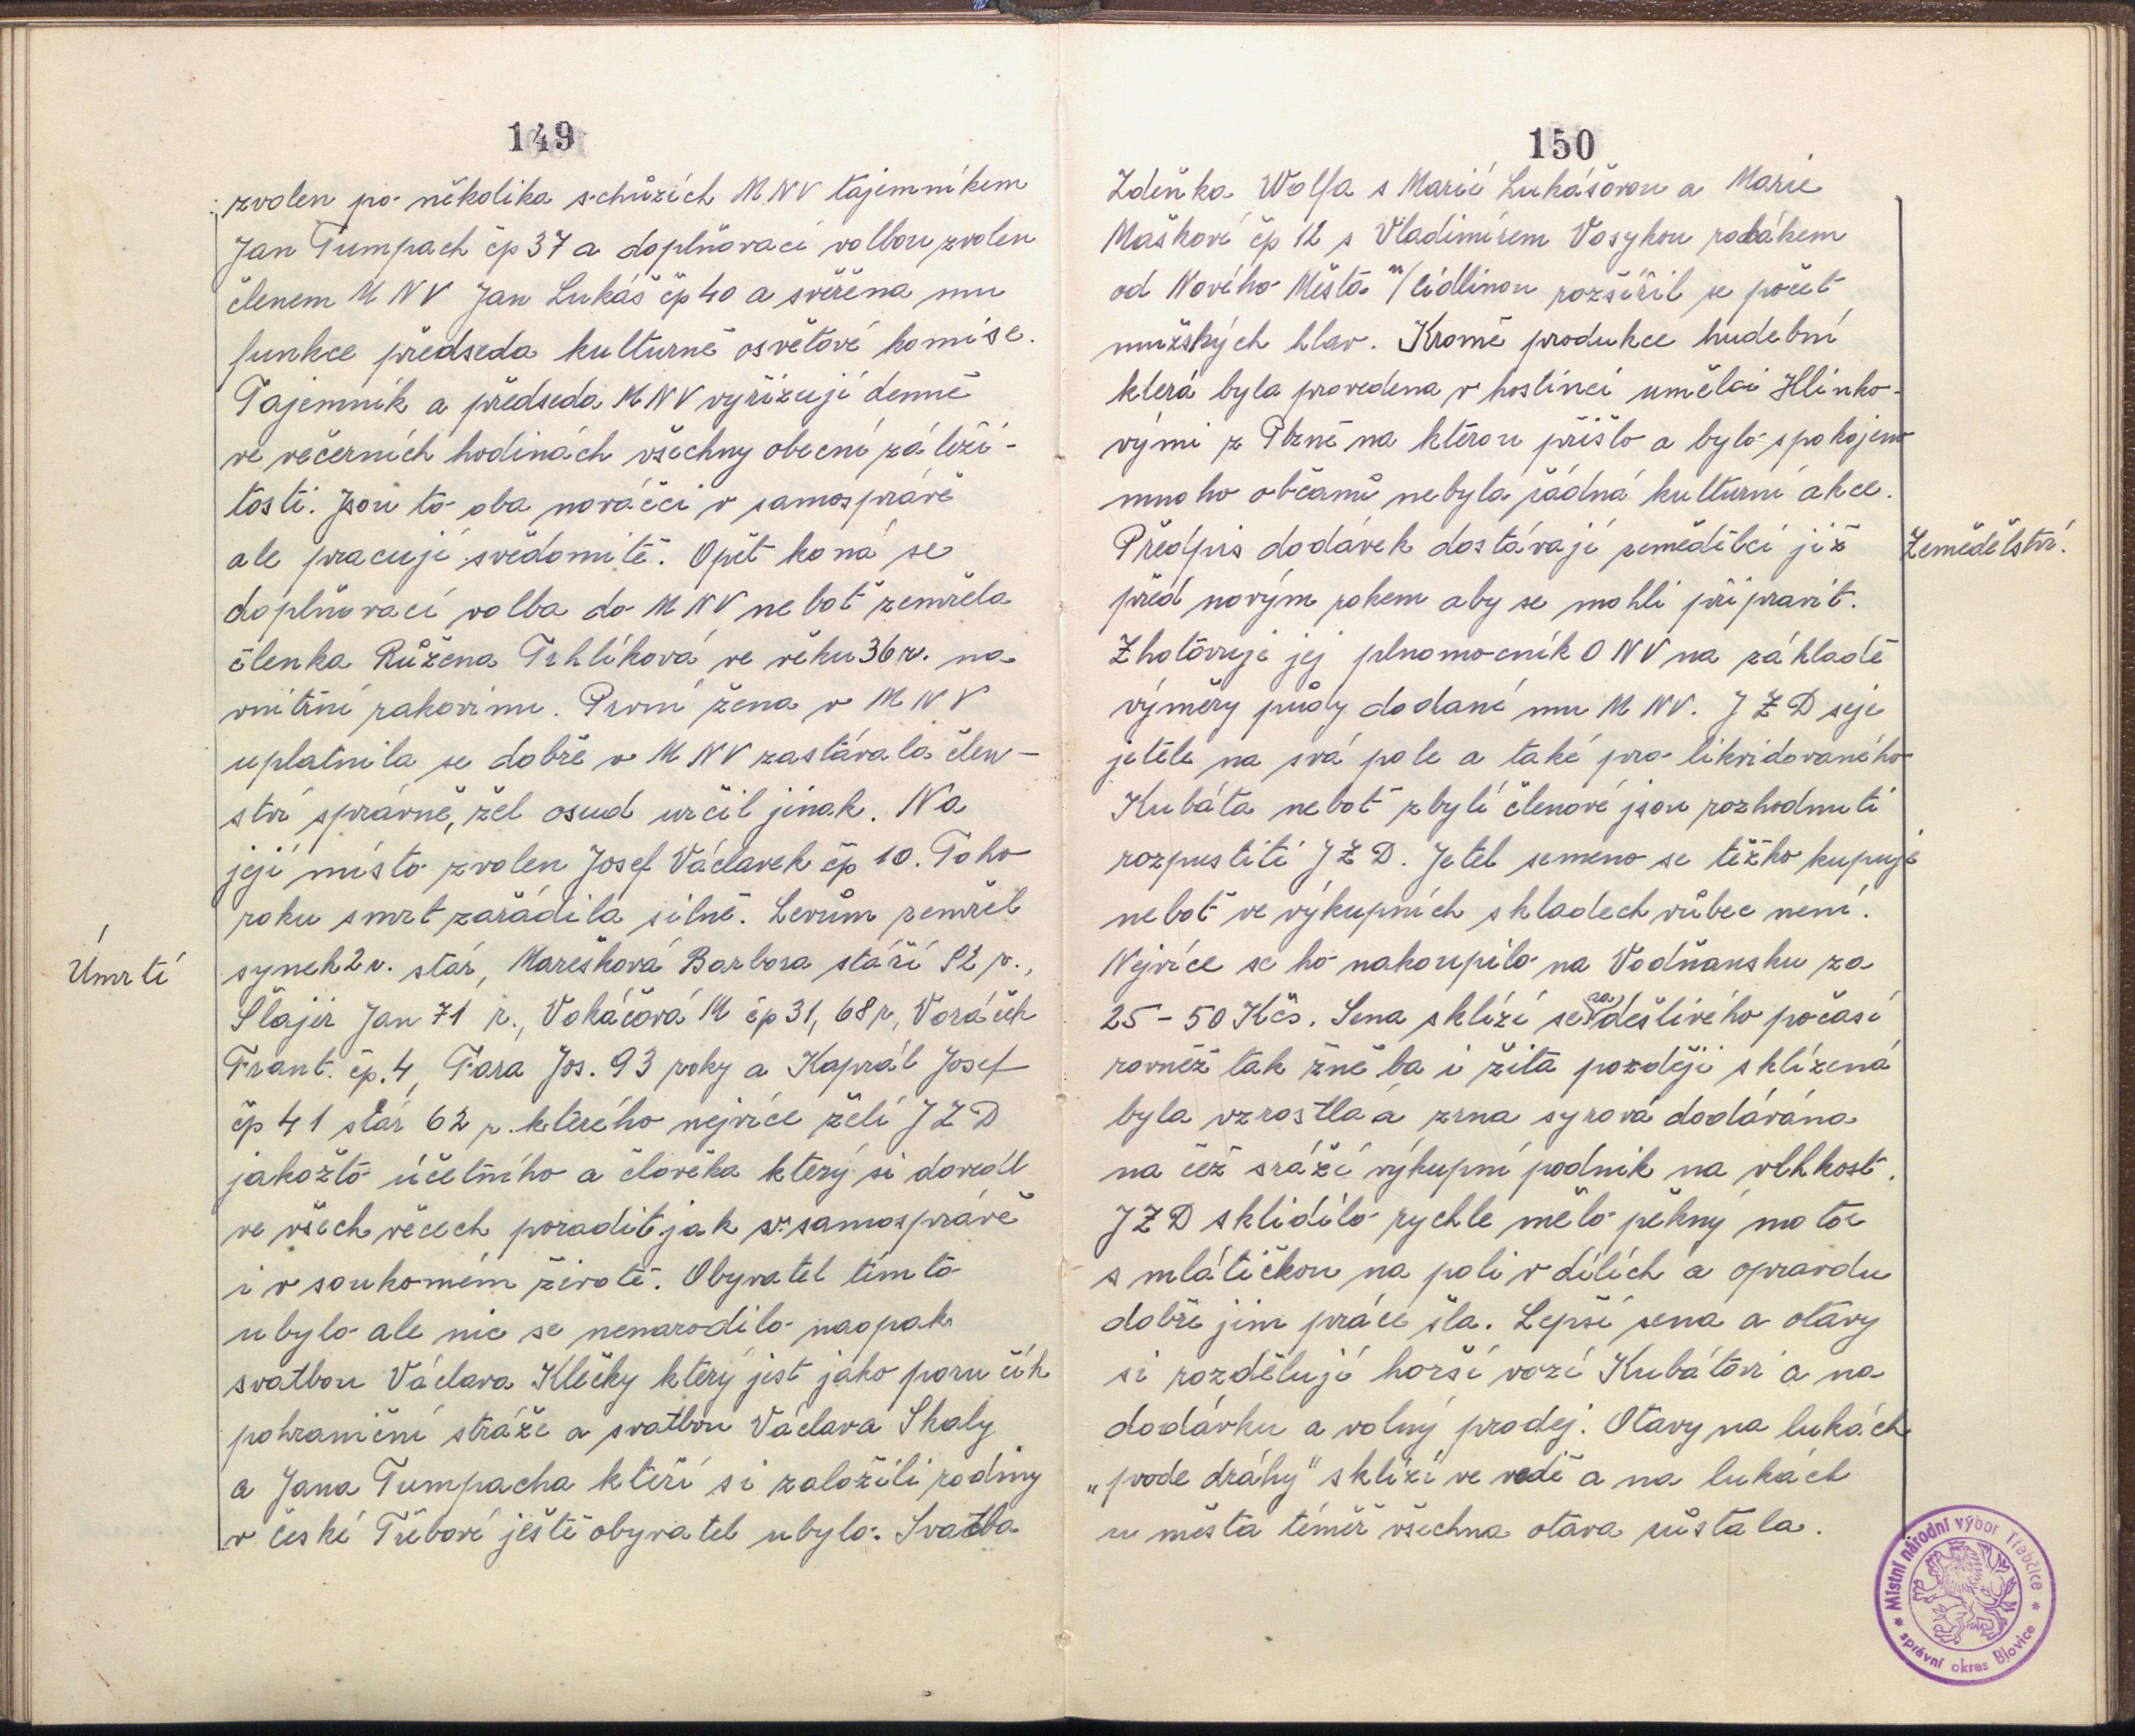 149
zvolen po několika schůzích MNV tajemníkem
Jan Tumpach čp 37 a doplňovací volbou zvolen
členem MNV Jan Lukáš čp 40 a svěřena mu
funkce předseda kulturně osvětové komise.
Tajemník a předseda MNV vyřizují denně
ve večerních hodinách všechny obecní záleži-
tosti. Jsou to oba nováčci v samosprávě
ale pracují svědomitě. Opět koná se
doplňovací volba do MNV neboť zemřela
členka Růžena Trhlíková ve věku 36 r. na
vnitřní rakovinu. První žena v MNV
uplatnila se dobře v MNV zastávala člen-
ství správně, žel osud určil jinak. Na
její místo zvolen Josef Václavek čp 10. Toho
roku smrt zařádila silně. Levům zemřel
Úmrtí
synek 2 r. stár, Marešková Barbora stáří 82 r.,
Šlajer Jan 71 r., Vokáčová M čp 31, 68 r, Voráček
Frant. čp. 4, Fara Jos. 93 roky a Kaprál Josef
čp 41 stár 62 r. kterého nejvíce želí JZD
jakožto účetního a člověka který si dovedl
ve všech věcech poradit jak v samosprávě
i v soukomém životě. Obyvatel tímto
ubylo ale nic se nenarodilo naopak
svatbou Václava Klečky který jest jako poručík
pohraniční stráže a svatbou Václava Skaly
a Jana Tumpacha kteří si založili rodiny
v české Třebové ještě obyvatel ubylo. Svatba
150
Zdeňka Wolfa s Marií Lukášovou a Marie
Maškové čp 12 s Vladimírem Vosykou rodákem
od Nového Města n/Cidlinou rozšířil se počet
mužských hlav. Kromě produkce hudební
která byla provedena v hostinci umělci Hlinko-
vými z Plzně na kterou přišlo a bylo spokojeno
mnoho občanů nebyla žádná kulturní akce.
Předpis dodávek dostávají zemědělci již
Zemědělství.
před novým rokem aby se mohli připravit.
Zhotovuje jej plnomocník ONV na základě
výměry půdy dodané mu MNV. JZD seje
jetele na svá pole a také pro likvidovaného
Kubáta neboť zbylí členové jsou rozhodnuti
rozpustiti JZD. Jetel semeno se těžko kupuje
neboť ve výkupních skladech vůbec není.
Nejvíce se ho nakoupilo na Vodňansku za
25 - 50 Kčs. Sena sklízí se za deštivého počasí
rovněž tak žně ba i žita později sklízená
byla vzrostlá a zrna syrová dodávána
na čež sráží výkupní podnik na vlhkost.
JZD sklidilo rychle mělo pěkný motor
s mlátičkou na poli v dílích a opravdu
dobře jim práce šla. Lepší sena a otavy
si rozdělují horší vozí Kubátovi a na
dodávku a volný prodej. Otavy na lukách
„pode dráhy" sklízí ve vodě a na lukách
u města téměř všechna otava zůstala.
* Místní národní výbor Třebčice *
správní okres Blovice